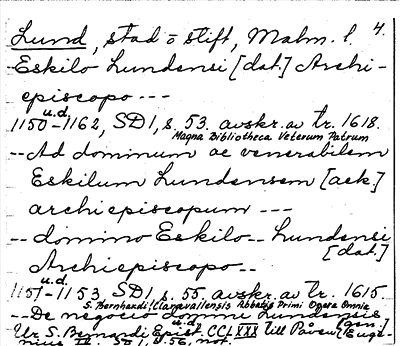 4.
Lund, stad o stift, Malm. l.
Eskilo Lundensi [dat.] Archi-
episcopo ---
u.d.
1150-1162, SD 1, s. 53. avskr. av tr. 1618.
Magna Bibliotheca Veterum Patrum
-- Ad dominum ac venerabilem
Eskilum Lundensem [ack.]
archiepiscopum ---
-- domino Eskilo -- Lundensi
[dat.]
Archiepiscopo --
u.d.
1151-1153 SD 1, s. 55 avskr. av tr. 1615.
S. Bernhardi Claravallensis Abbatis Primi Opera Omnia
-- De negocio domni Lundensis
[gen.]
u.d.
Ur S. Bernardi Epist. CCLXXX till Påven Euge-
nius SD 1, s. 56, not.